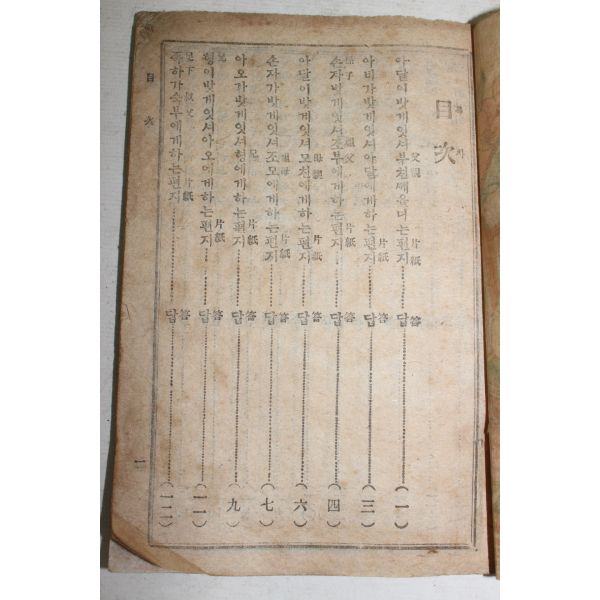 目次
아달이밧게잇셔부친께올니는편지 父親 片紙 답 答 (一)
아비가밧게잇셔아달에게하는편지 片紙 답 答 (三)
손자가밧게잇셔조부에게하는편지 孫子 祖父 片紙 답 答 (四)
아달이밧게잇셔모친에게하는편지 母親 片紙 답 答 (六)
손자가밧게잇셔조모에게하는편지 祖母 片紙 답 答 (七)
아오가밧게잇셔형에게하는편지 兄 片紙 답 答 (九)
형이밧게잇셔아오에게하는편지 兄 片紙 답 答 (一一)
족하가숙부에게하는편지 足下 叔父 片紙 답 答 (一二)
目次
一